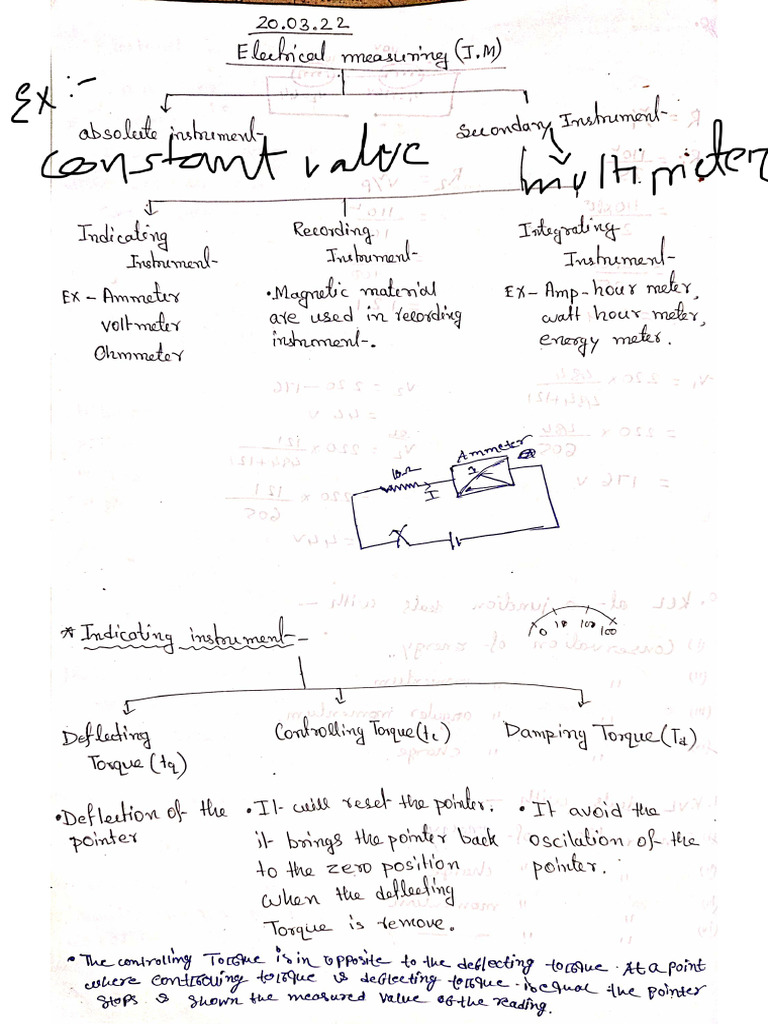 20.03.22
Electrical measuring (I.M)
Ex :-
absolute instrument
Secondary Instrument
constant value
multimider
Indicating Instrument
Recording Instrument
Integrating Instrument
Ex - Ammeter
voltmeter
Ohmmeter
• Magnetic material
are used in recording
instrument.
Ex - Amp-hour meter,
watt hour meter,
energy meter.
Ammeter
10Ω
I
* Indicating instrument -
0 10 100 100
Deflecting
Torque (tq)
Controlling Torque (tc)
Damping Torque (Td)
• Deflection of the
pointer
• It will reset the pointer.
it brings the pointer back
to the zero position
when the deflecting
Torque is remove.
• It avoid the
oscilation of the
pointer.
• The controlling Torque is in opposite to the deflecting torque. At a point
where controlling torque & deflecting torque is equal the pointer
stops & shown the measured value of the reading.